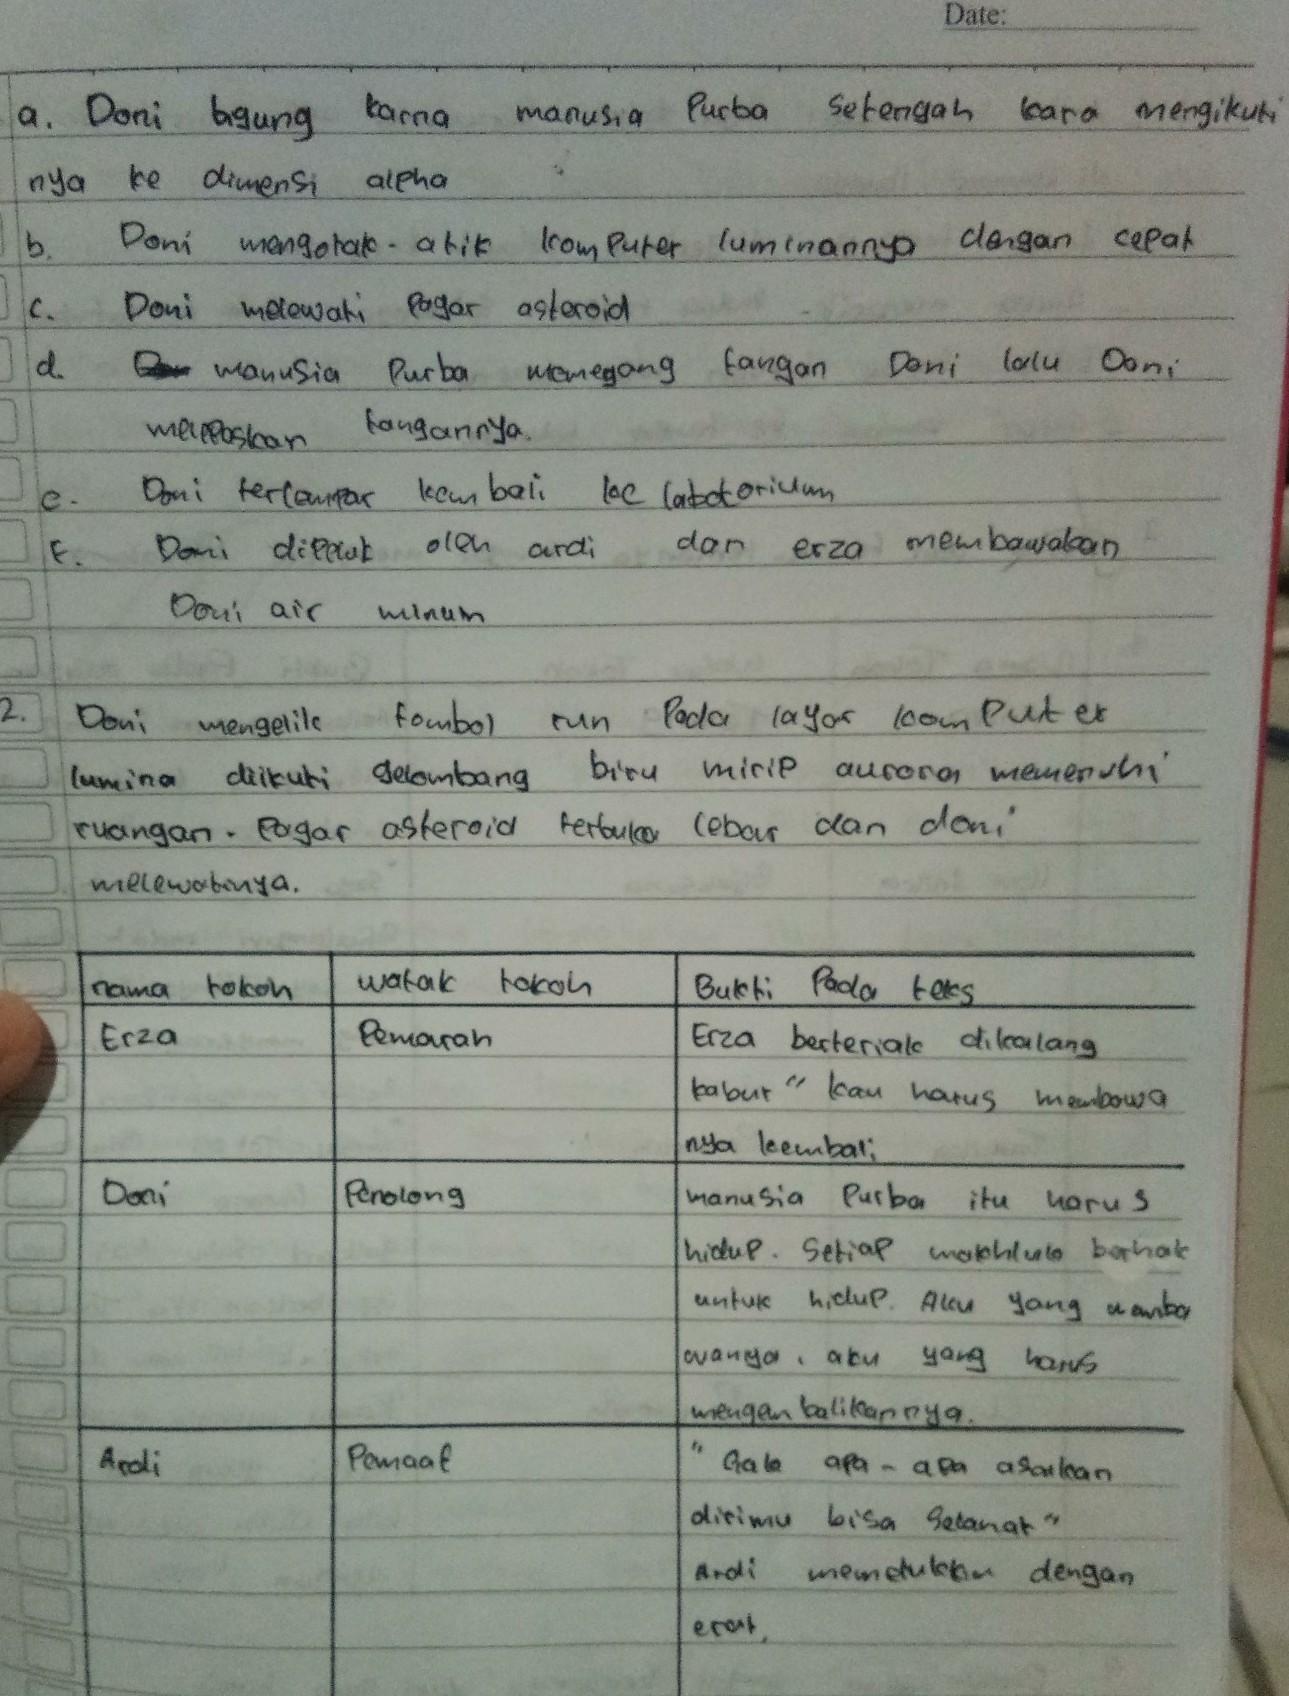 Date:
a. Doni bigung karna manusia Purba setengah kara mengikuti
nya ke dimensi alpha
b. Doni mengotak-atik komputer luminannya dengan cepat
c. Doni melewati Pagar asteroid
d. manusia Purba memegang tangan Doni lalu Doni
melepaskan tangannya.
e. Doni terlempar kembali ke labotorium
f. Doni dipeluk oleh ardi dan erza membawakan
Doni air minum
2. Doni mengelik tombol run Pada layar komputer
lumina diikuti gelombang biru mirip aurora memenuhi
ruangan. Pagar asteroid terbuka lebar dan doni
melewatinya.
nama tokoh watak tokoh Bukti Pada teks
Erza Pemarah Erza berteriak dikalang
kabut " kau harus membawa
nya kembali
Doni Penolong manusia Purba itu harus
hidup. Setiap makhluk berhak
untuk hidup. Aku yang memba
wanya, aku yang harus
mengenbalikannya.
Ardi Pemaaf " Gak apa-apa asalkan
dirimu bisa selamat "
Ardi memeluk dengan
erat.